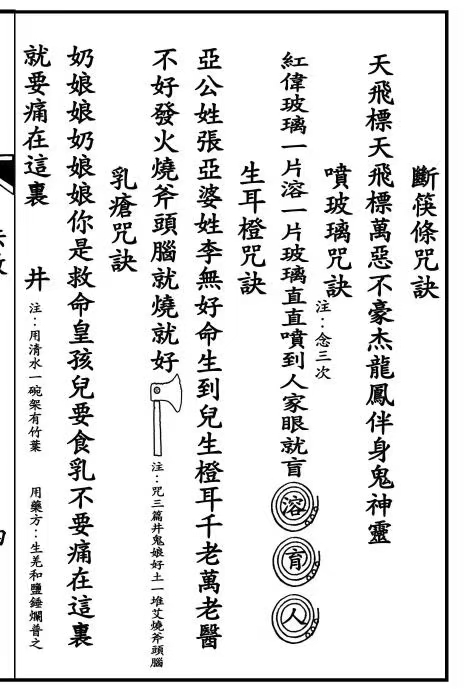 斷筷條咒訣
天飛標天飛標萬惡不豪杰龍鳳伴身鬼神靈
噴玻璃咒訣 注：念三次
紅偉玻璃一片溶一片玻璃直直噴到人家眼就肓 溶 肓 人
生耳橙咒訣
亞公姓張亞婆姓李無好命生到兒生橙耳千老萬老醫
不好發火燒斧頭腦就燒就好 注：咒三篇井鬼娘好土一堆艾燒斧頭腦
乳瘡咒訣
奶娘娘奶娘娘你是救命皇孩兒要食乳不要痛在這裏
就要痛在這裏 井 注：用清水一碗架有竹葉 用藥方：生羌和鹽錘爛普之